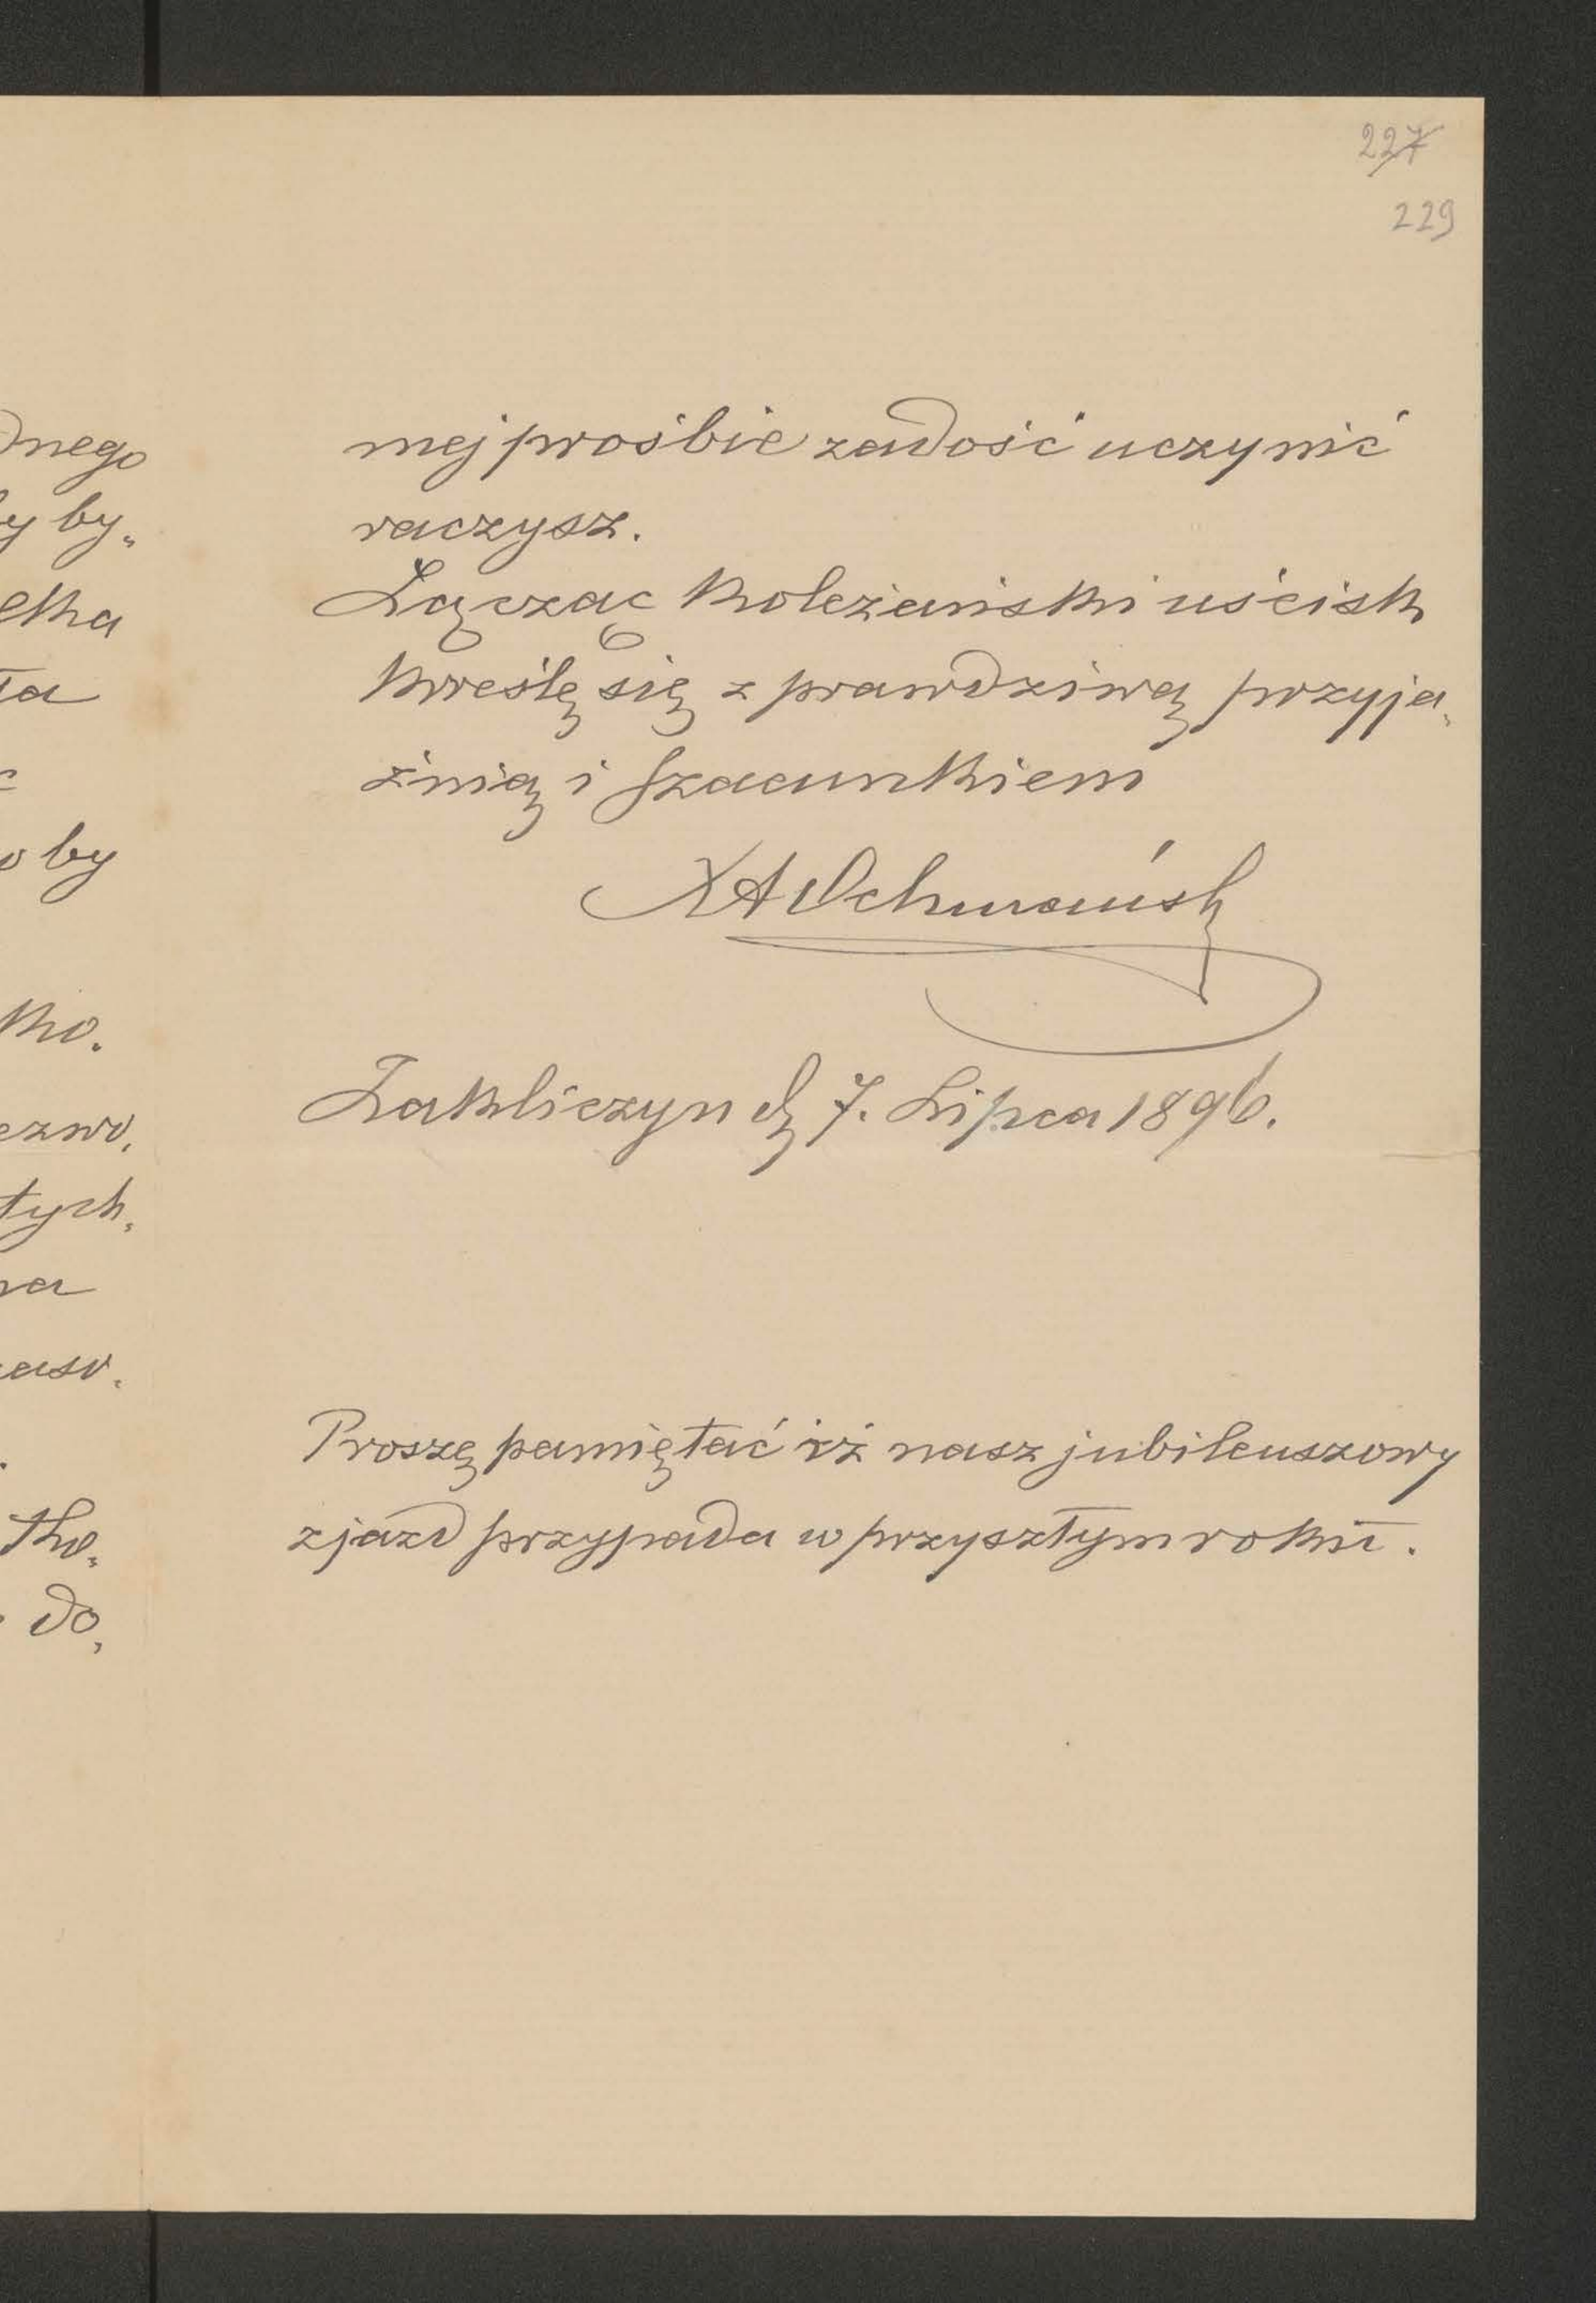 227
229
dnego
y by„
elka
ła
o by
ko.
ezwo,
tych,
na
do,
mej prośbie zadość uczynić
raczysz.
Łącząc koleżański uścisk
kreślę się z prawdziwą przyja„
źnią i szacunkiem
XA Ochmańsk
Zakliczyn d 7. Lipca 1896.
Proszę pamiętać iż nasz jubileuszowy
zjazd przypada w przyszłym roku.